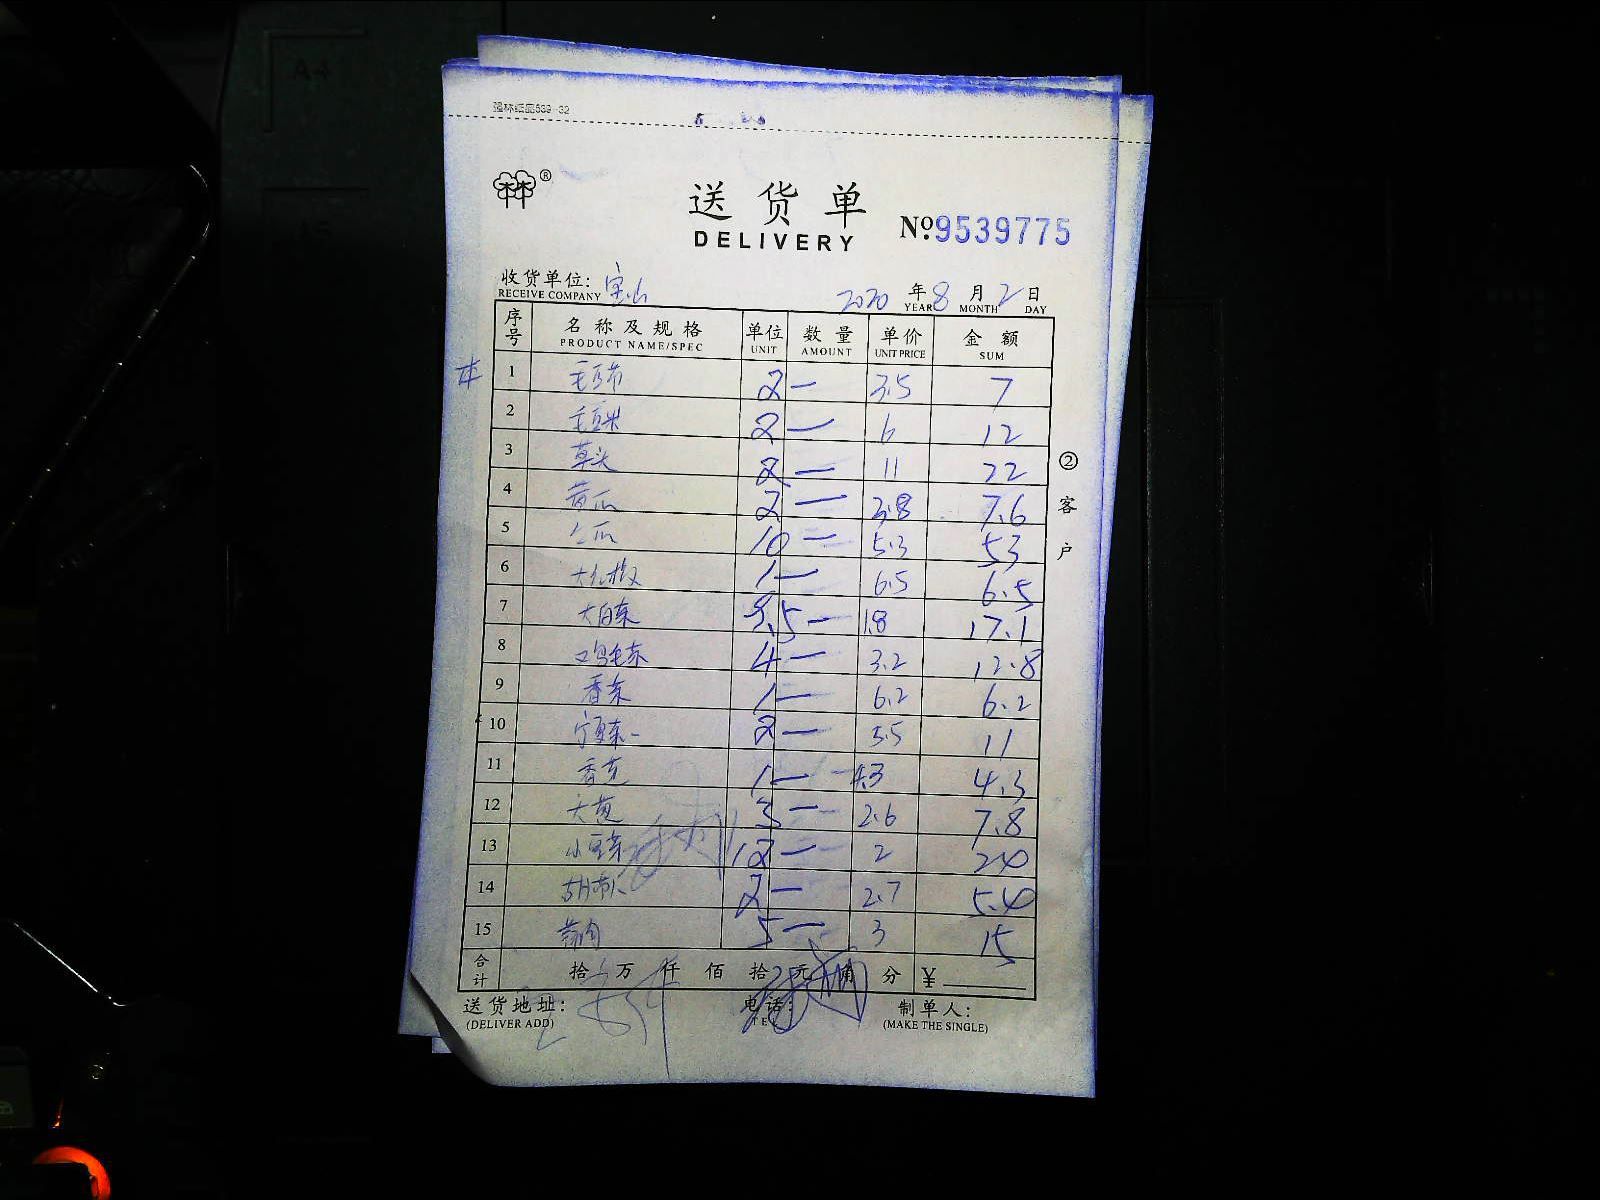 强林纸品539-32
®
送货单
DELIVERY
No.9539775
收货单位: 宝山
RECEIVE COMPANY
2020 年 8 月 2 日
YEAR MONTH DAY
序号 名称及规格 单位 数量 单价 金额
PRODUCT NAME/SPEC UNIT AMOUNT UNIT PRICE SUM
1 毛豆节 2 — 3.5 7
2 毛豆米 2 — 6 12
3 草头 2 — 11 22
4 黄瓜 2 — 3.8 7.6
5 瓜 10 — 5.3 53
6 大红椒 1 — 6.5 6.5
7 大白菜 9.5 — 1.8 17.1
8 鸡毛菜 4 — 3.2 12.8
9 香菜 1 — 6.2 6.2
10 2 — 5.5 11
11 香芹 1 — 4.3 4.3
12 大葱 3 — 2.6 7.8
13 12 — 2 24
14 胡 2 — 2.7 5.4
15 5 — 3 15
合计 拾 万 仟 佰 拾 元 角 分 ¥
送货地址: 电话: 制单人:
(DELIVER ADD) TEL (MAKE THE SINGLE)
② 客户